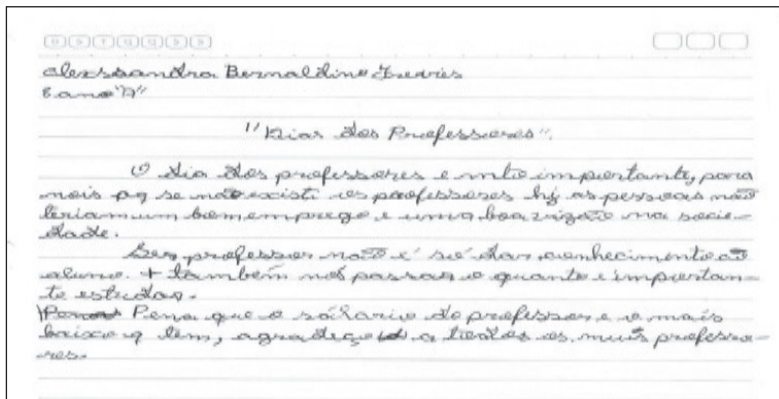 D S T Q Q S S
alexssandra Bernaldino
8 ano "A"
"Dias dos Professores".
O dia dos professores e mto importante, para
nois pq se não existi os professores hj as pessoas não
teriam um bom emprego e uma boa vizão na socie-
dade.
Ser professor não é só dar conhecimento ao
aluno. + também nos passar o quanto é importan-
te estudar.
Pena que o sálario do professor, e o mais
baixo q tem, agradeço a todos os meus professo-
res.